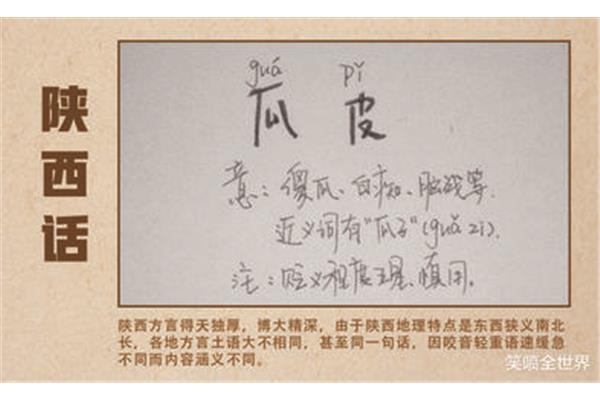 陕西话
guá pǐ
瓜皮
意：傻瓜、白痴、脑残等.
近义词有"瓜子"(guǎ zi).
注：贬义程度星、慎用。
陕西方言得天独厚，博大精深，由于陕西地理特点是东西狭义南北
长，各地方言土语大不相同，甚至同一句话，因咬音轻重语速缓急
不同而内容涵义不同。
笑喷全世界